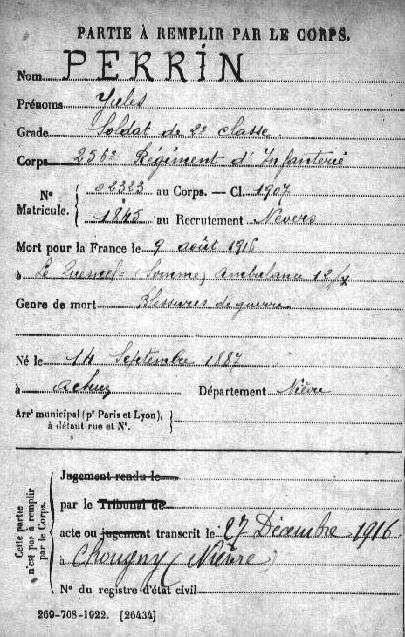 PARTIE À REMPLIR PAR LE CORPS.
Nom PERRIN
Prénoms Jules
Grade Soldat de 2e classe
Corps 256e Régiment d'Infanterie
N° Matricule. { 02323 au Corps. — Cl. 1907
1845 au Recrutement Nevers
Mort pour la France le 9 août 1916
à Le Quesnel (Somme) ambulance
Genre de mort Blessures de guerre
Né le 14 Septembre 1887
à Achun Département Nièvre
Arrt municipal (pr Paris et Lyon), à défaut rue et N°.
Cette partie n'est pas à remplir par le Corps.
Jugement rendu le
par le Tribunal de
acte ou jugement transcrit le 27 Décembre 1916
à Chougny (Nièvre)
N° du registre d'état civil
269-708-1922. [26434]